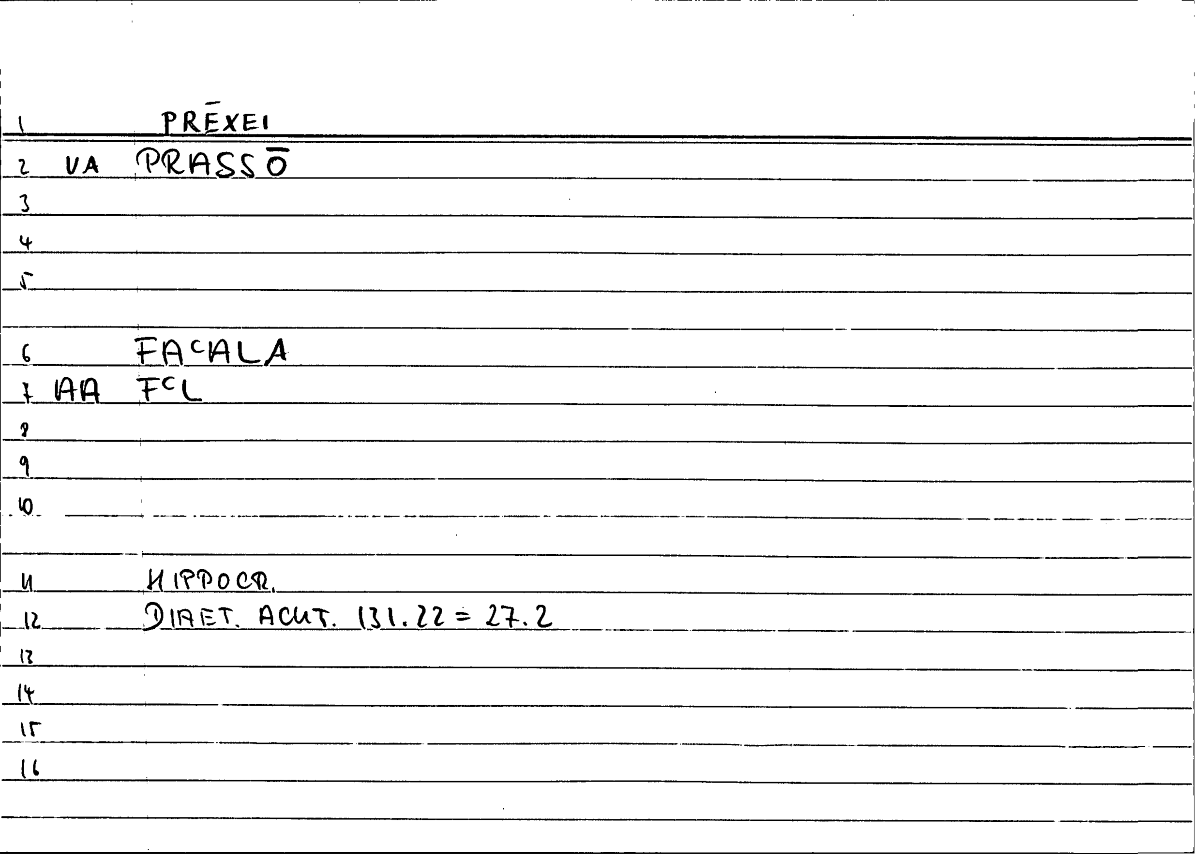 1 PRĒXEI
2 VA PRASSŌ
3
4
5
6 FAᶜALA
7 AA FᶜL
8
9
10
11 HIPPOCR.
12 DIAET. ACUT. 131.22 = 27.2
13
14
15
16